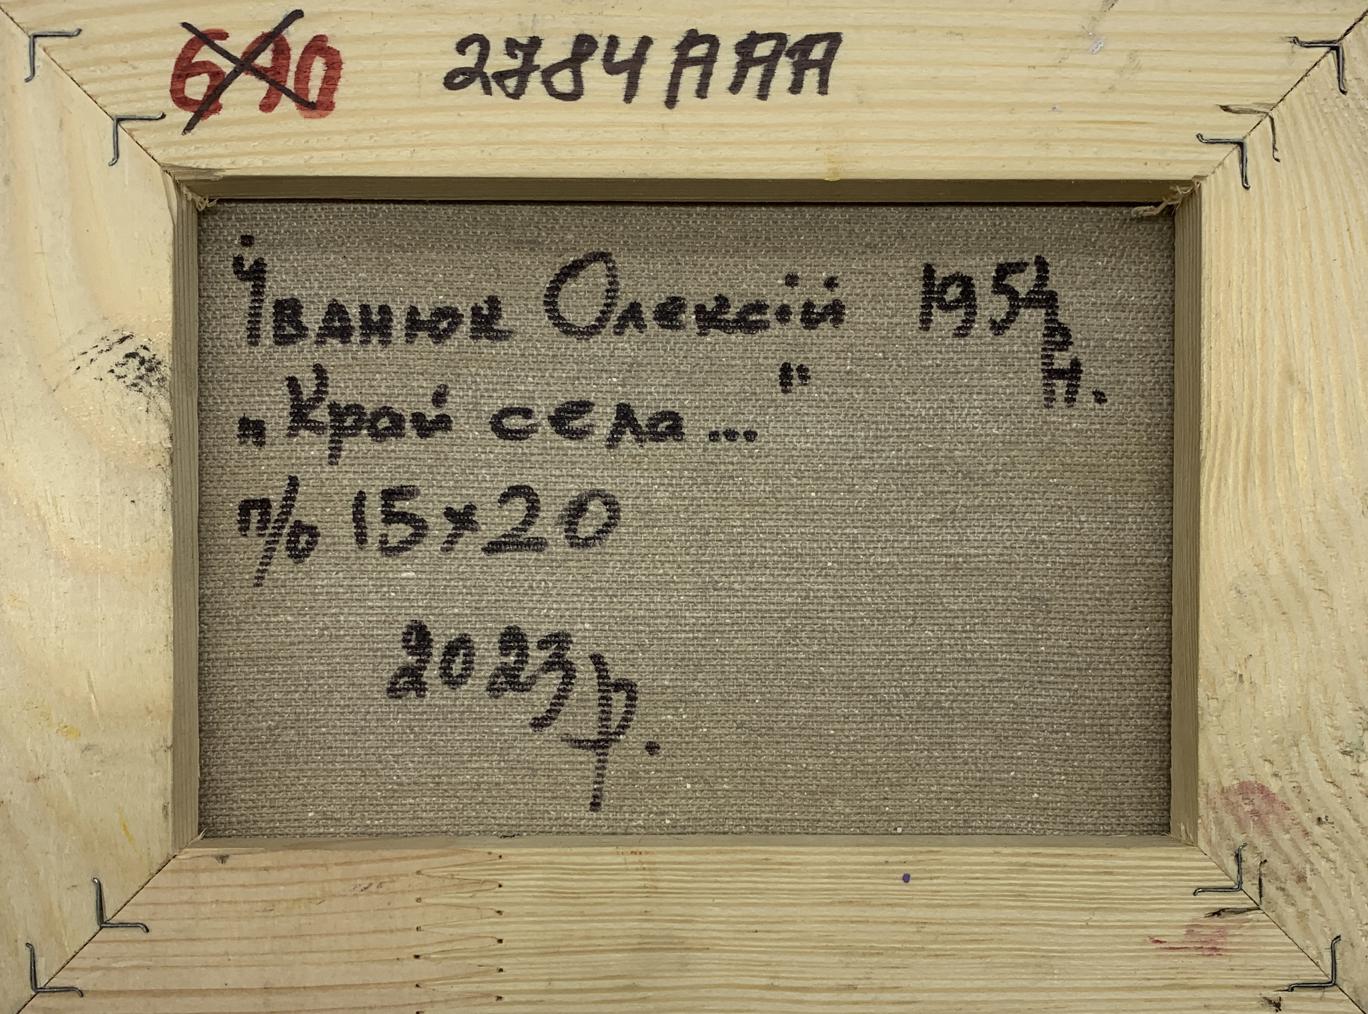 610 2784AAA
Іванюк Олексій 1954
р
н.
„Край села..."
п/о 15×20
2023р.